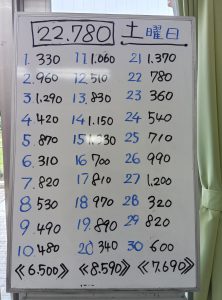 22.780 土曜日
1. 330 11 1.060 21 1.370
2. 960 12 510 22 780
3. 1.290 13. 830 23 360
4. 420 14 1.150 24 540
5. 870 15 1.330 25 710
6. 310 16 700 26 990
7. 820 17 810 27 1.200
8 530 18 970 28 320
9. 490 19. 890 29 820
10. 480 20 340 30 600
《6.500》 《8.590》 《7.690》